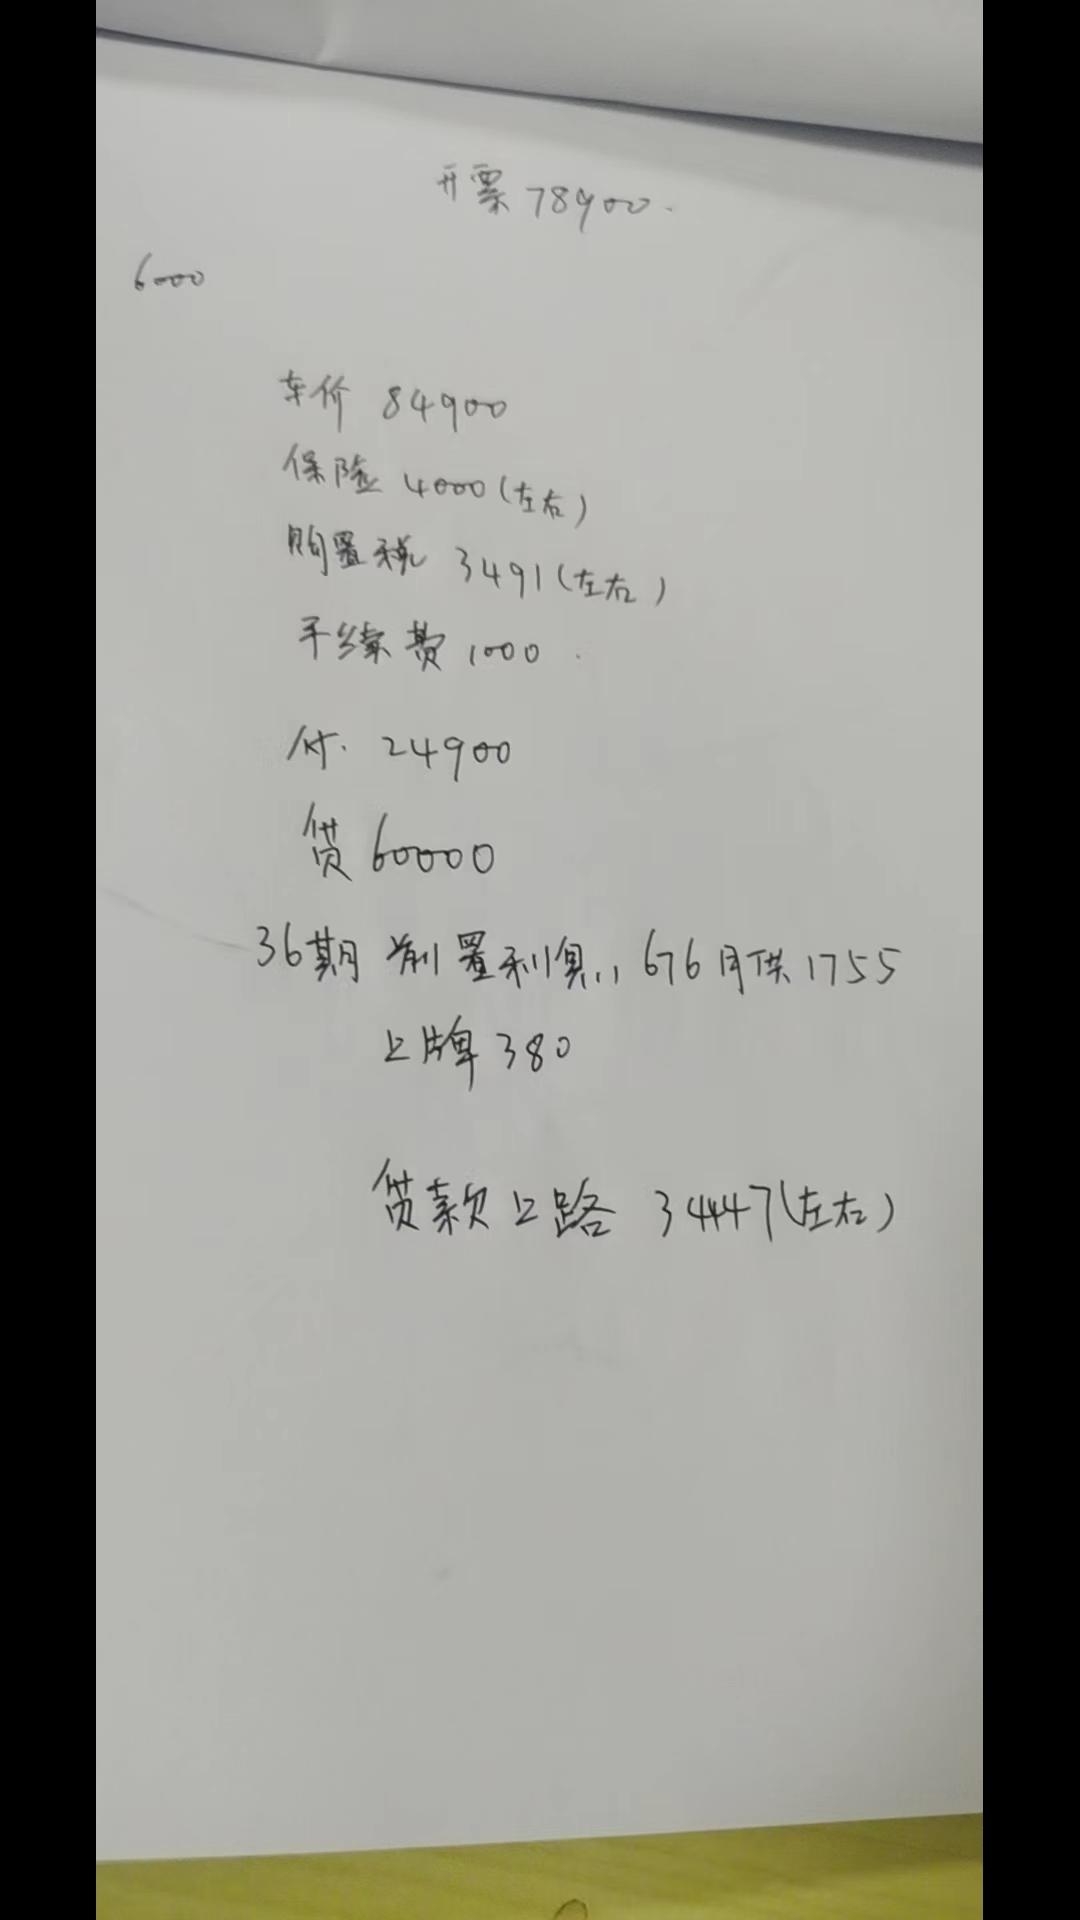 开票 78900.
6000
车价 84900
保险 4000(左右)
购置税 3491(左右)
手续费 1000.
付. 24900
贷 60000
36期 前置利息:, 676 月供 1755
上牌 380
贷款上路 34447(左右)